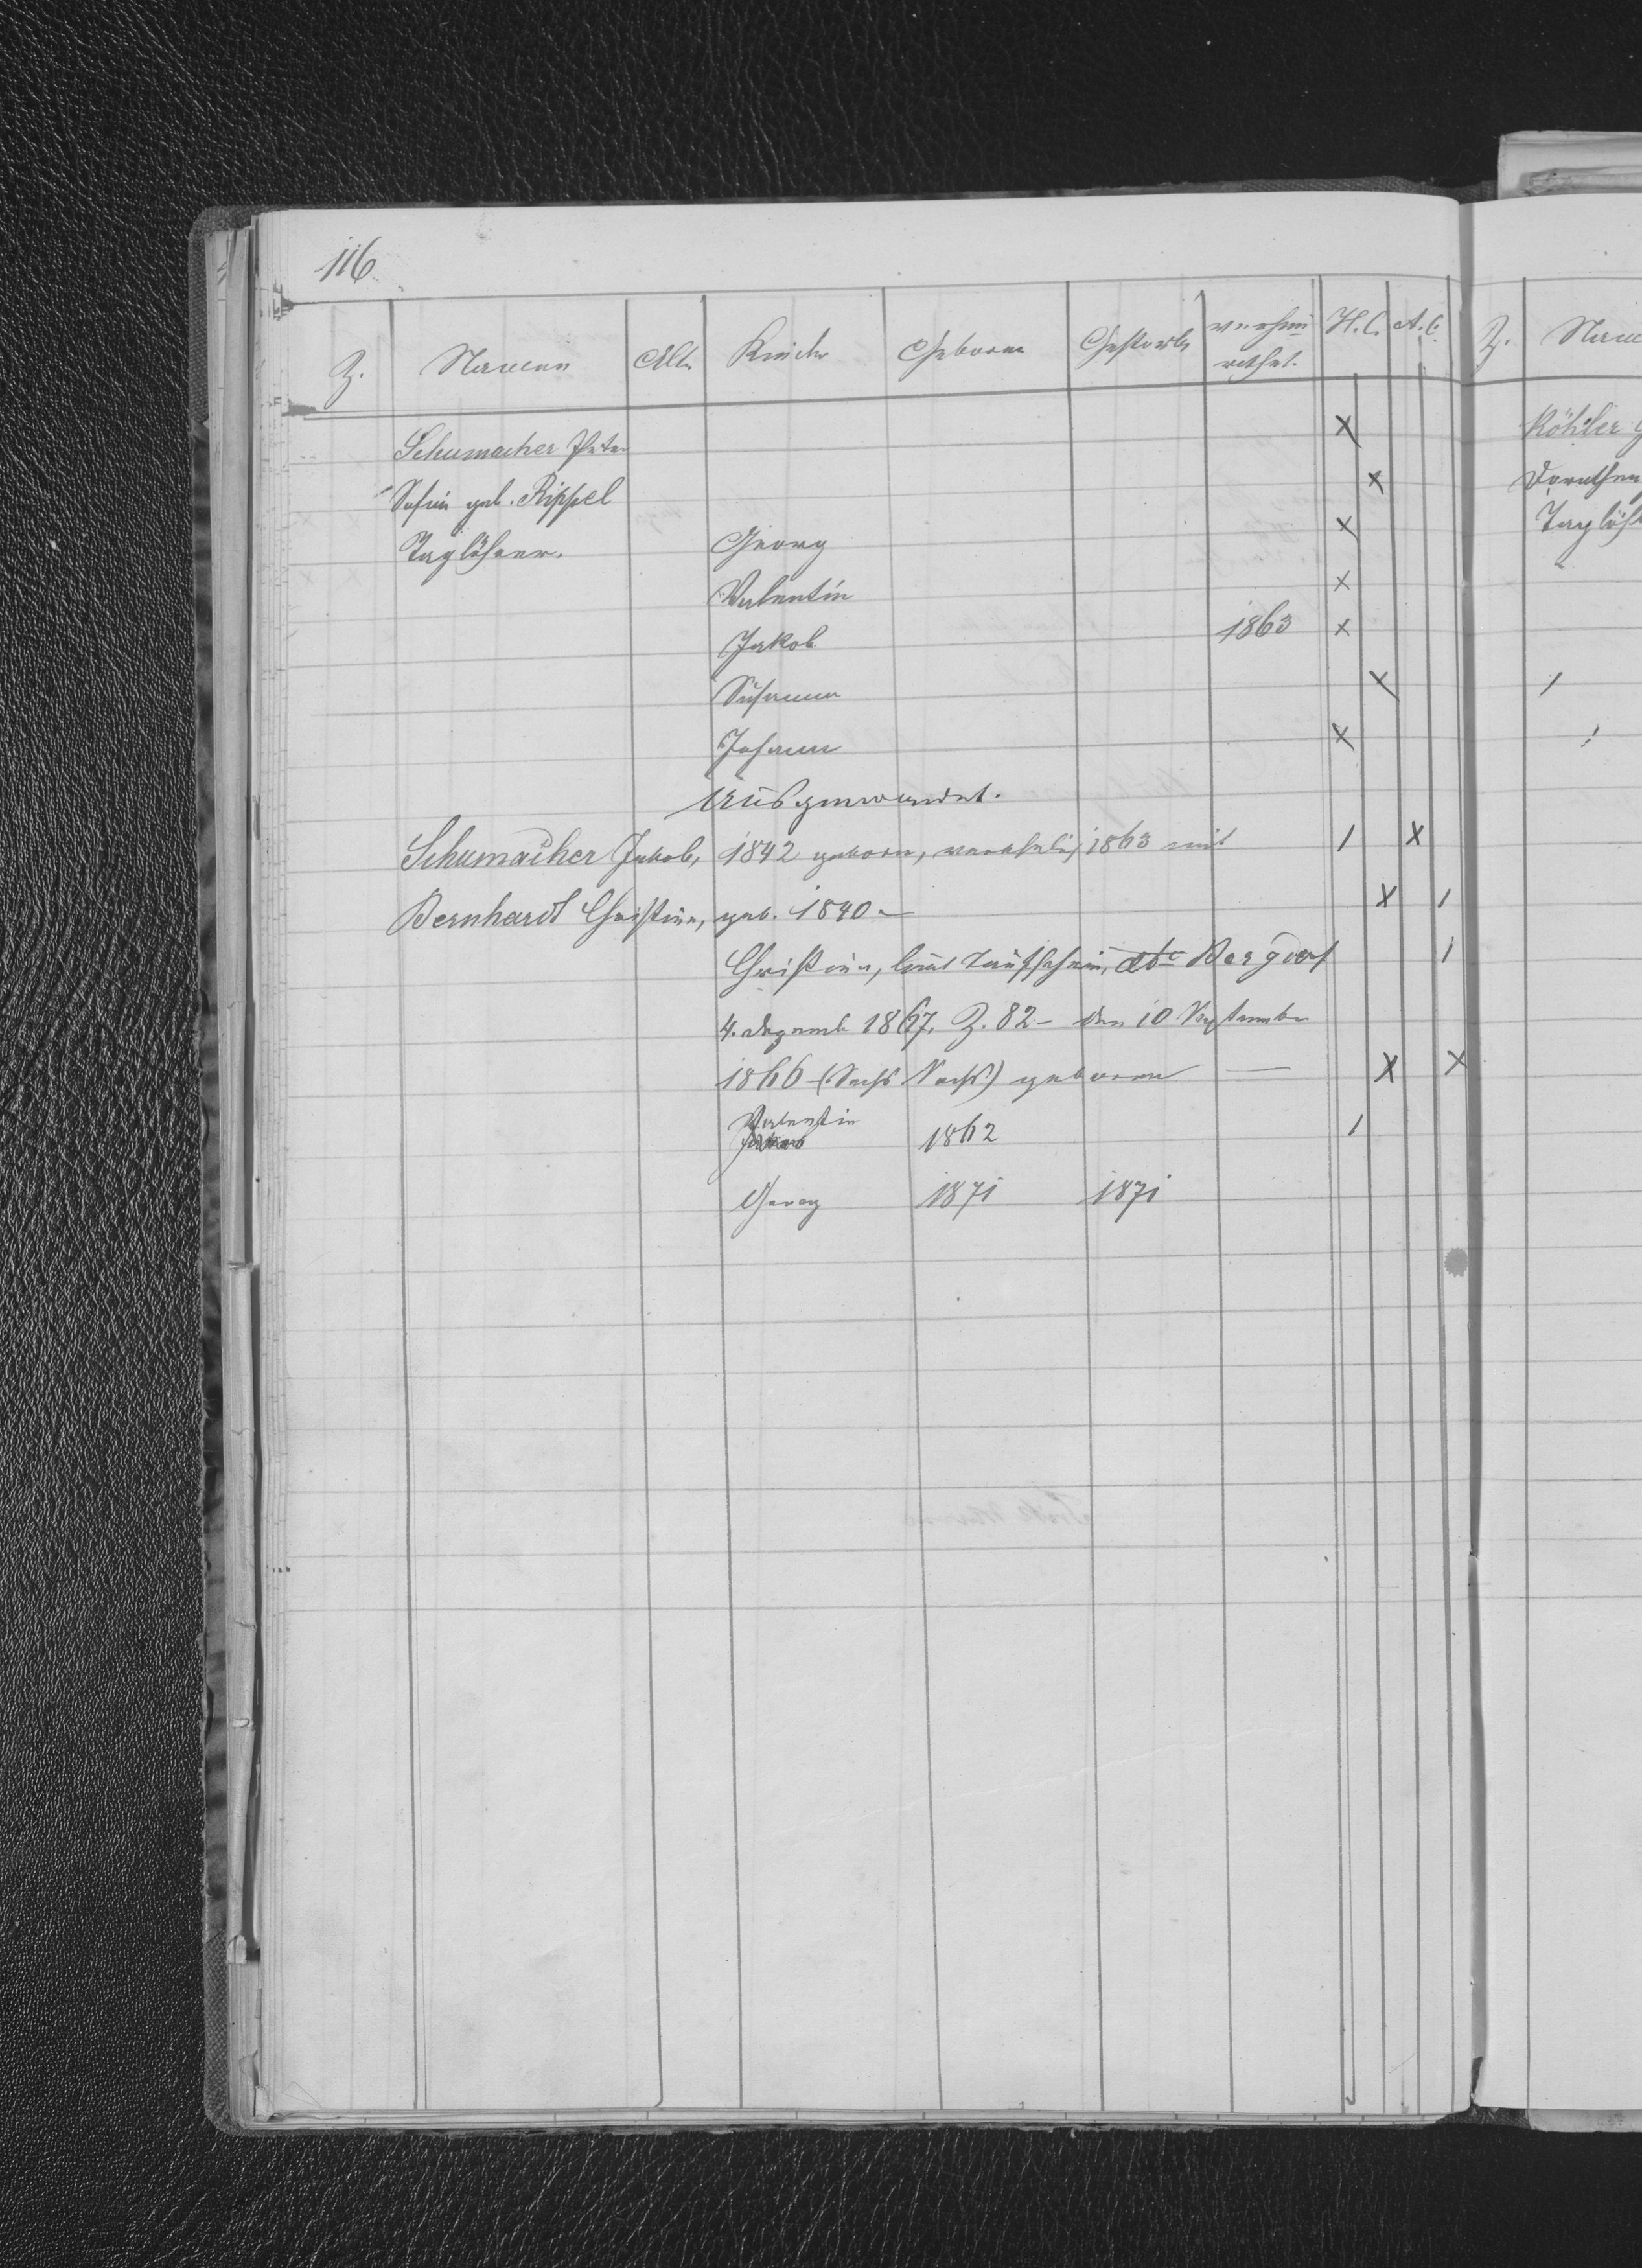 116
Z. Namen Alt. Kinder Geboren Gestorb. verhei H. C. A. C.
rathet.
Schumacher Peter x
Sofia geb. Rippel x
Taglöhner. Georg x
Valentin x
Jakob 1863 x
Susanna x
Johann x
Ausgewandert.
Schumacher Jakob, 1842 geboren, verehelig 1863 mit 1 x
Bernhardt Christina, geb. 1840 – x 1
Christina, laut Taufschein, dto 1
4. Dezemb 1867. Z. 82 – den 10 September
1866 – geboren — x x
Valentin
Jakob 1862 1
Georg 1871 1871
Z. Name
Köhler
Dorothea
Taglöh